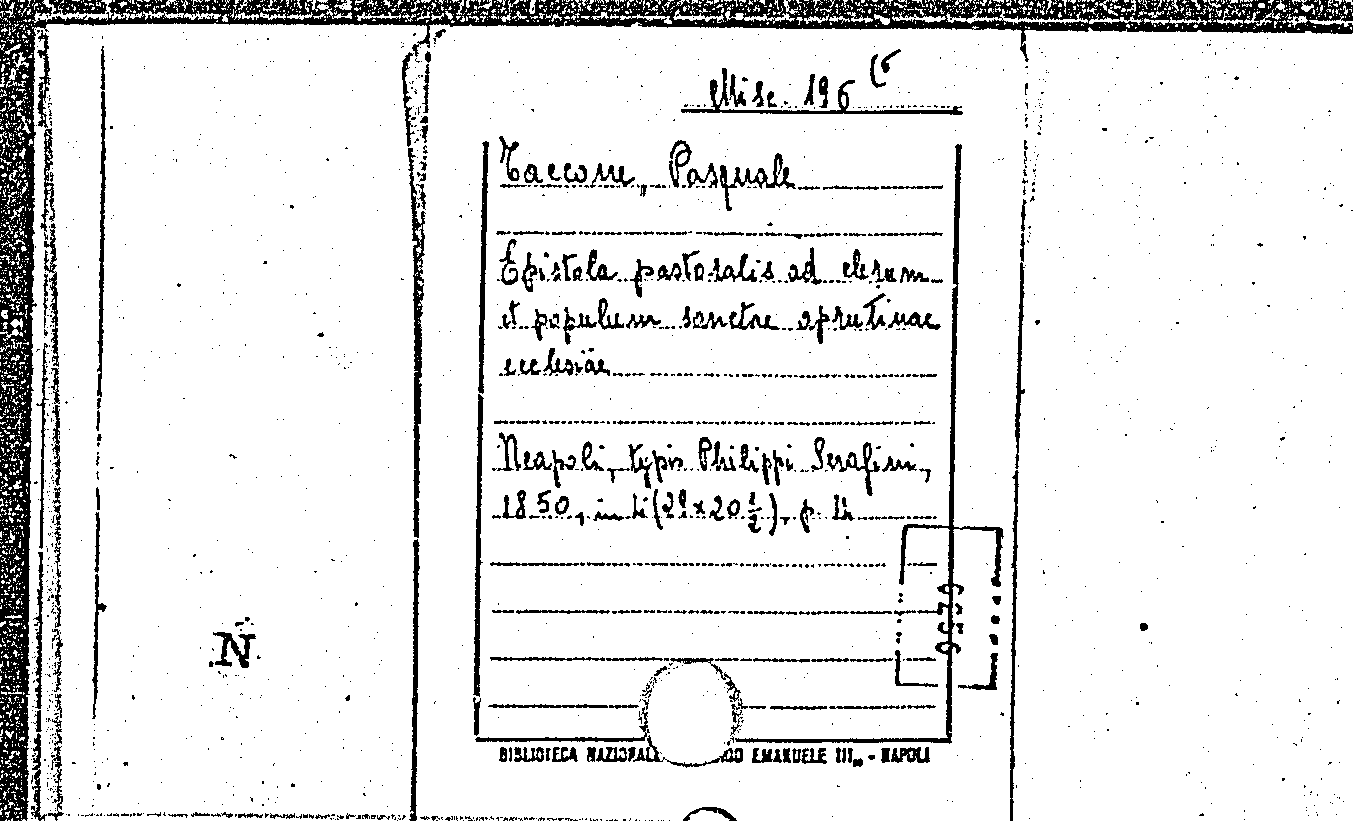 Misc. 196 (6
Taccone, Pasquale
Epistola pastoralis ad clerum
et populum sanctae aprutinae
ecclesiae
Neapoli, typis Philippi Serafini,
1850, in 4 (29x20 ½), p. 14
N
BIBLIOTECA NAZIONALE EMANUELE III„ - NAPOLI